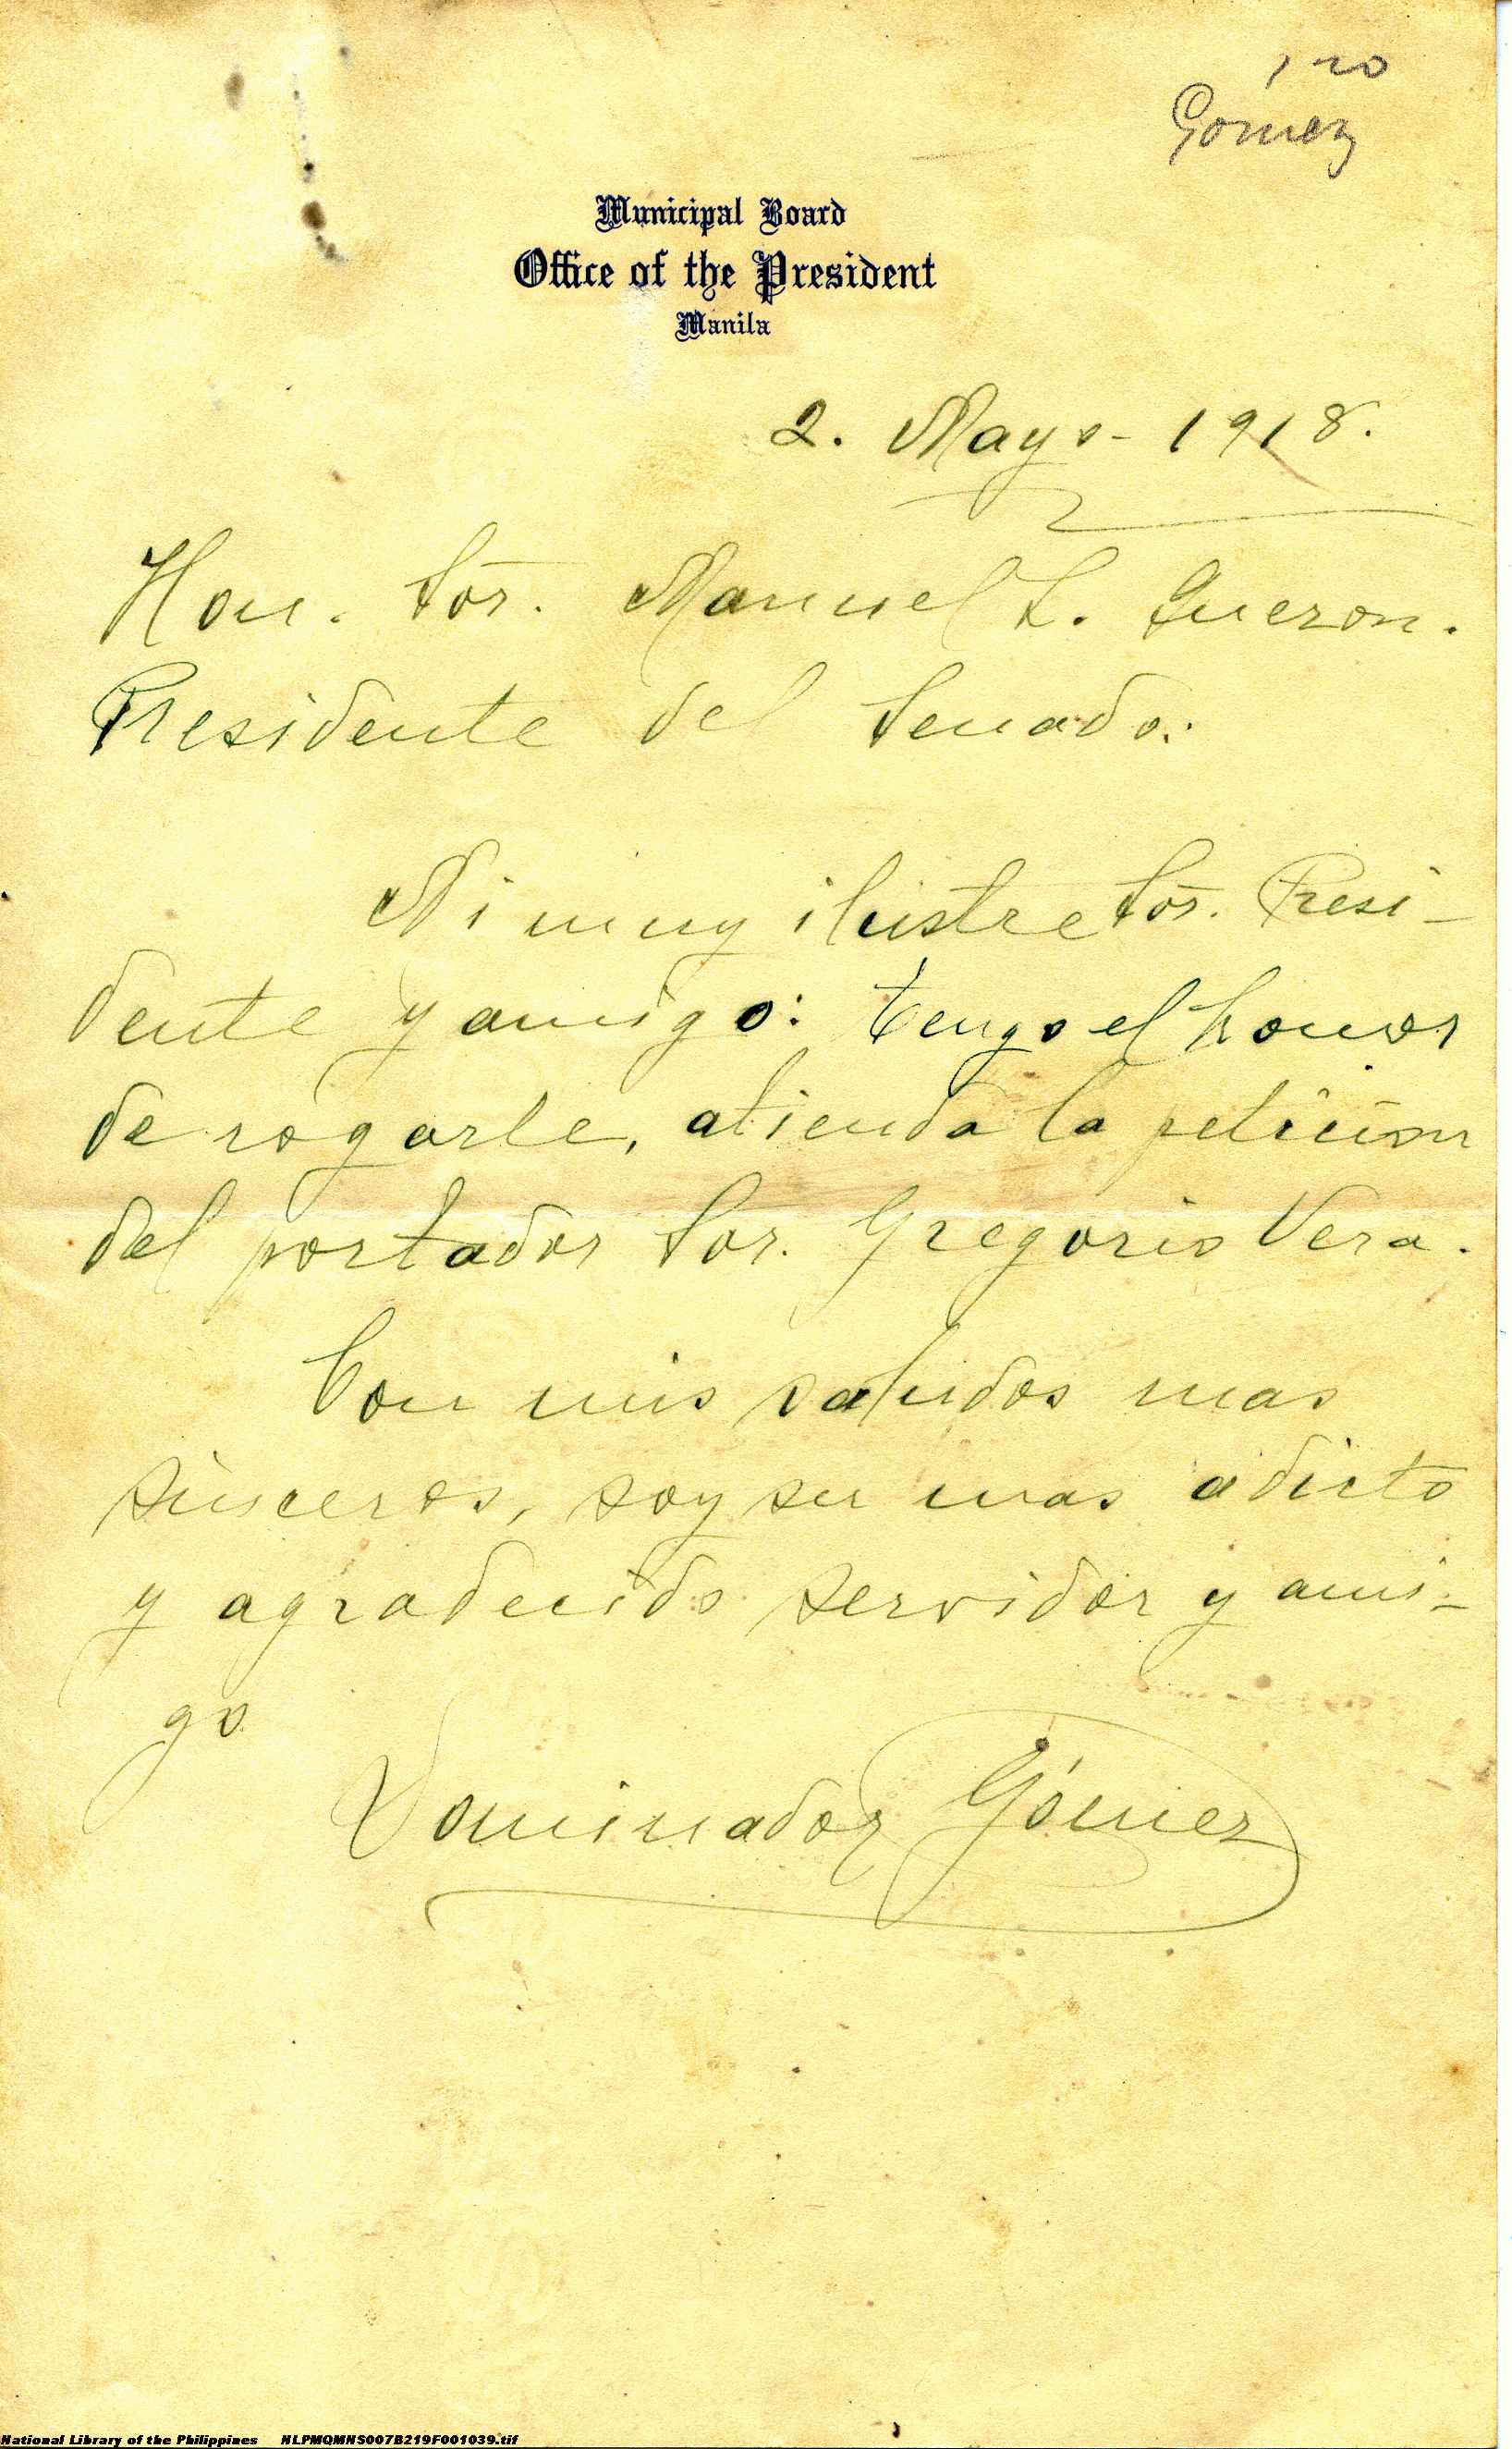 Gomez
Municipal Board
Office of the President
Manila
2. Mayo - 1918.
Hon. Sor. Manuel L. Quezon.
Presidente del Senado:
Mi muy ilustre Sor. Presi-
dente y amigo: tengo el honor
de rogarle, atienda la peticion
del portador Sor. Gregorio Vera.
Con mis saludos mas
sinceros, soy su mas adicto
y agradecido servidor y ami-
go
Dominador Gómez
National Library of the Philippines NLPMQMNS007B219F001039.tif